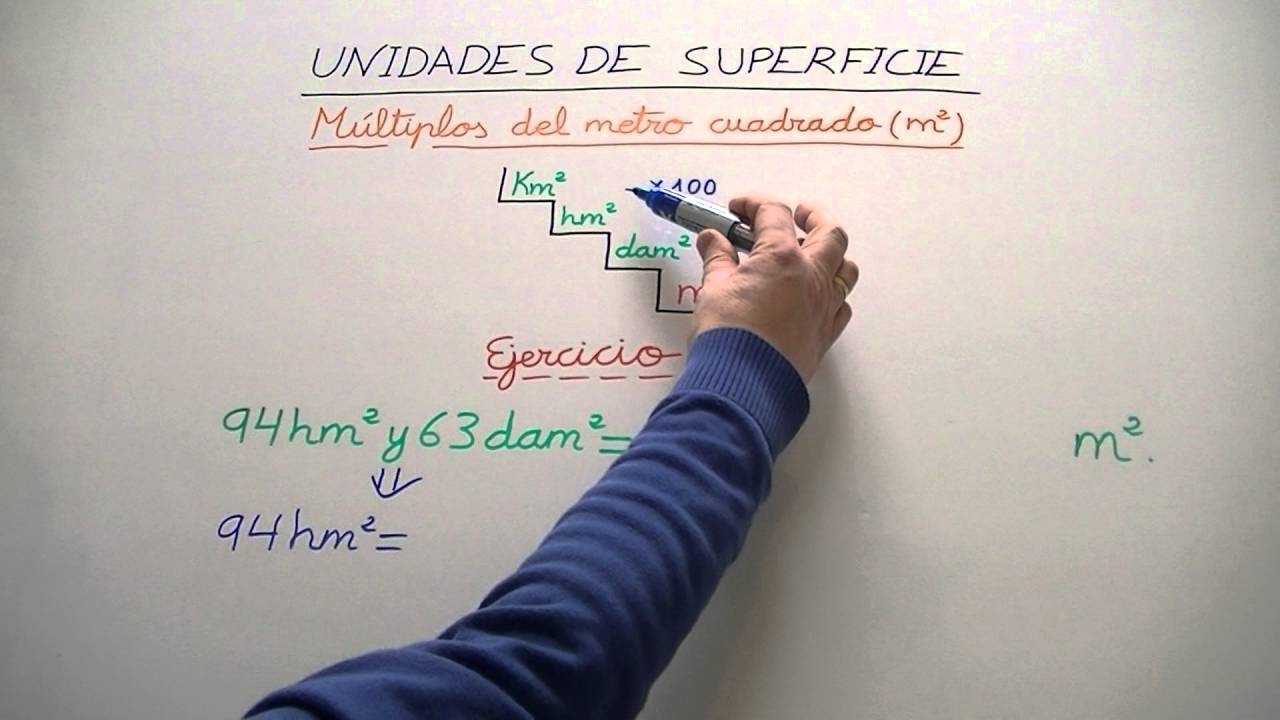 UNIDADES DE SUPERFICIE
Múltiplos del metro cuadrado (m²)
Km²
x 100
hm²
dam²
Ejercicio
94 hm² y 63 dam² = m².
94 hm² =